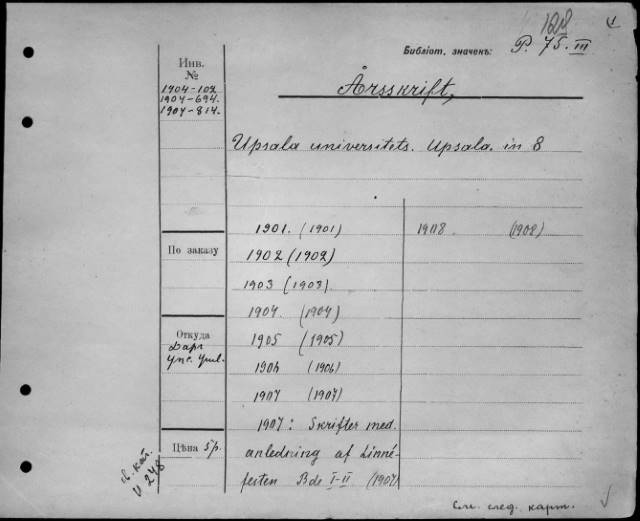 1218
Библіот. значекъ: P. 75. III
Инв.
№
1904-102
1907-694.
1907-814.
Årsskrift,
Upsala universitets. Upsala. in 8
1901. (1901)
1908. (1908)
По заказу
1902 (1902)
1903 (1903)
1904. (1904)
Откуда
Даръ
Упс. Унив.
1905 (1905)
1906 (1906)
1907 (1907)
1907: Skrifter med.
Цѣна 5р.
anledning af Linné-
festen Bde I-II (1907)
св. кат.
V 248
См. след. карт.